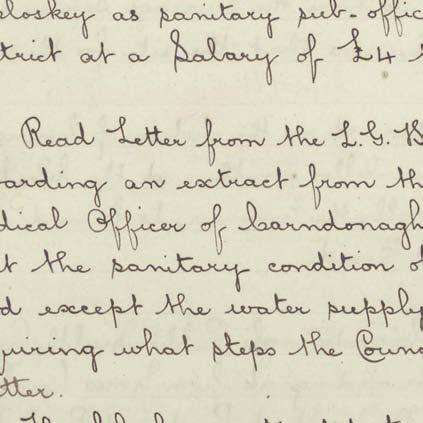 eloskey as sanitary sub-offic
trict at a Salary of £4
Read Letter from the L.G.B
arding an extract from th
dical Officer of Carndonagh
t the sanitary condition of
d except the water supply
quiring what steps the Counc
tter.